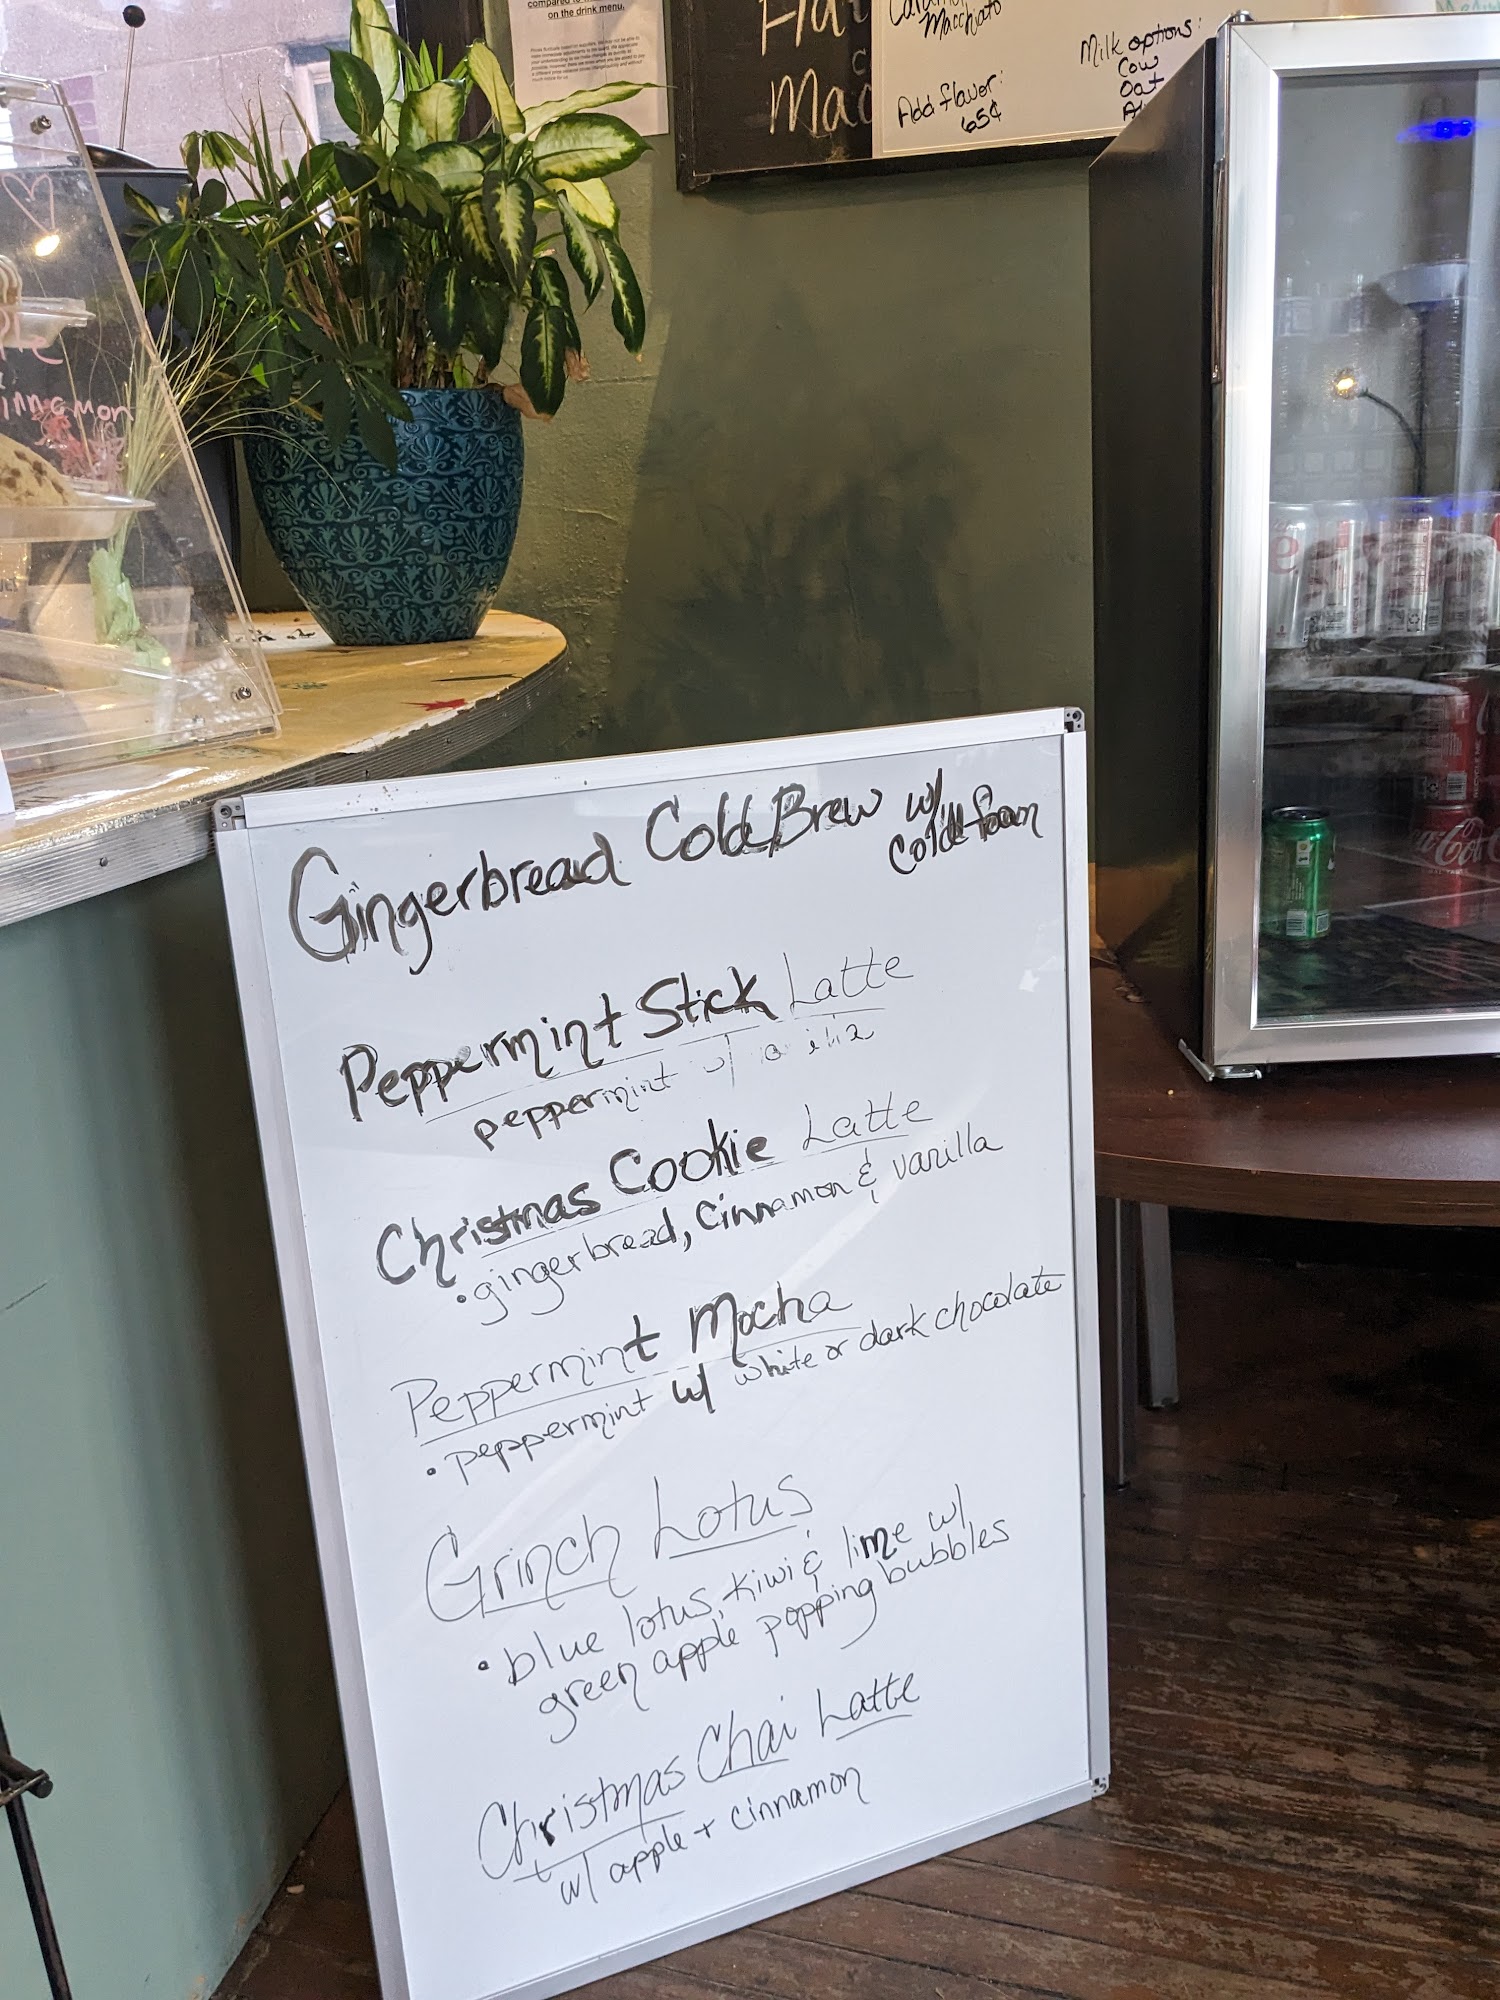 compared to
on the drink menu.
Caramel
Macchiato
Add flavor:
65¢
Milk options:
Cow
Oat
innamon
Gingerbread Cold Brew w/
Cold foam
Peppermint Stick Latte
peppermint w/
Christmas Cookie Latte
• gingerbread, cinnamon & vanilla
Peppermint Mocha
• peppermint w/ white or dark chocolate
Grinch Lotus
• blue lotus, kiwi & lime w/
green apple popping bubbles
Christmas Chai Latte
w/ apple + cinnamon